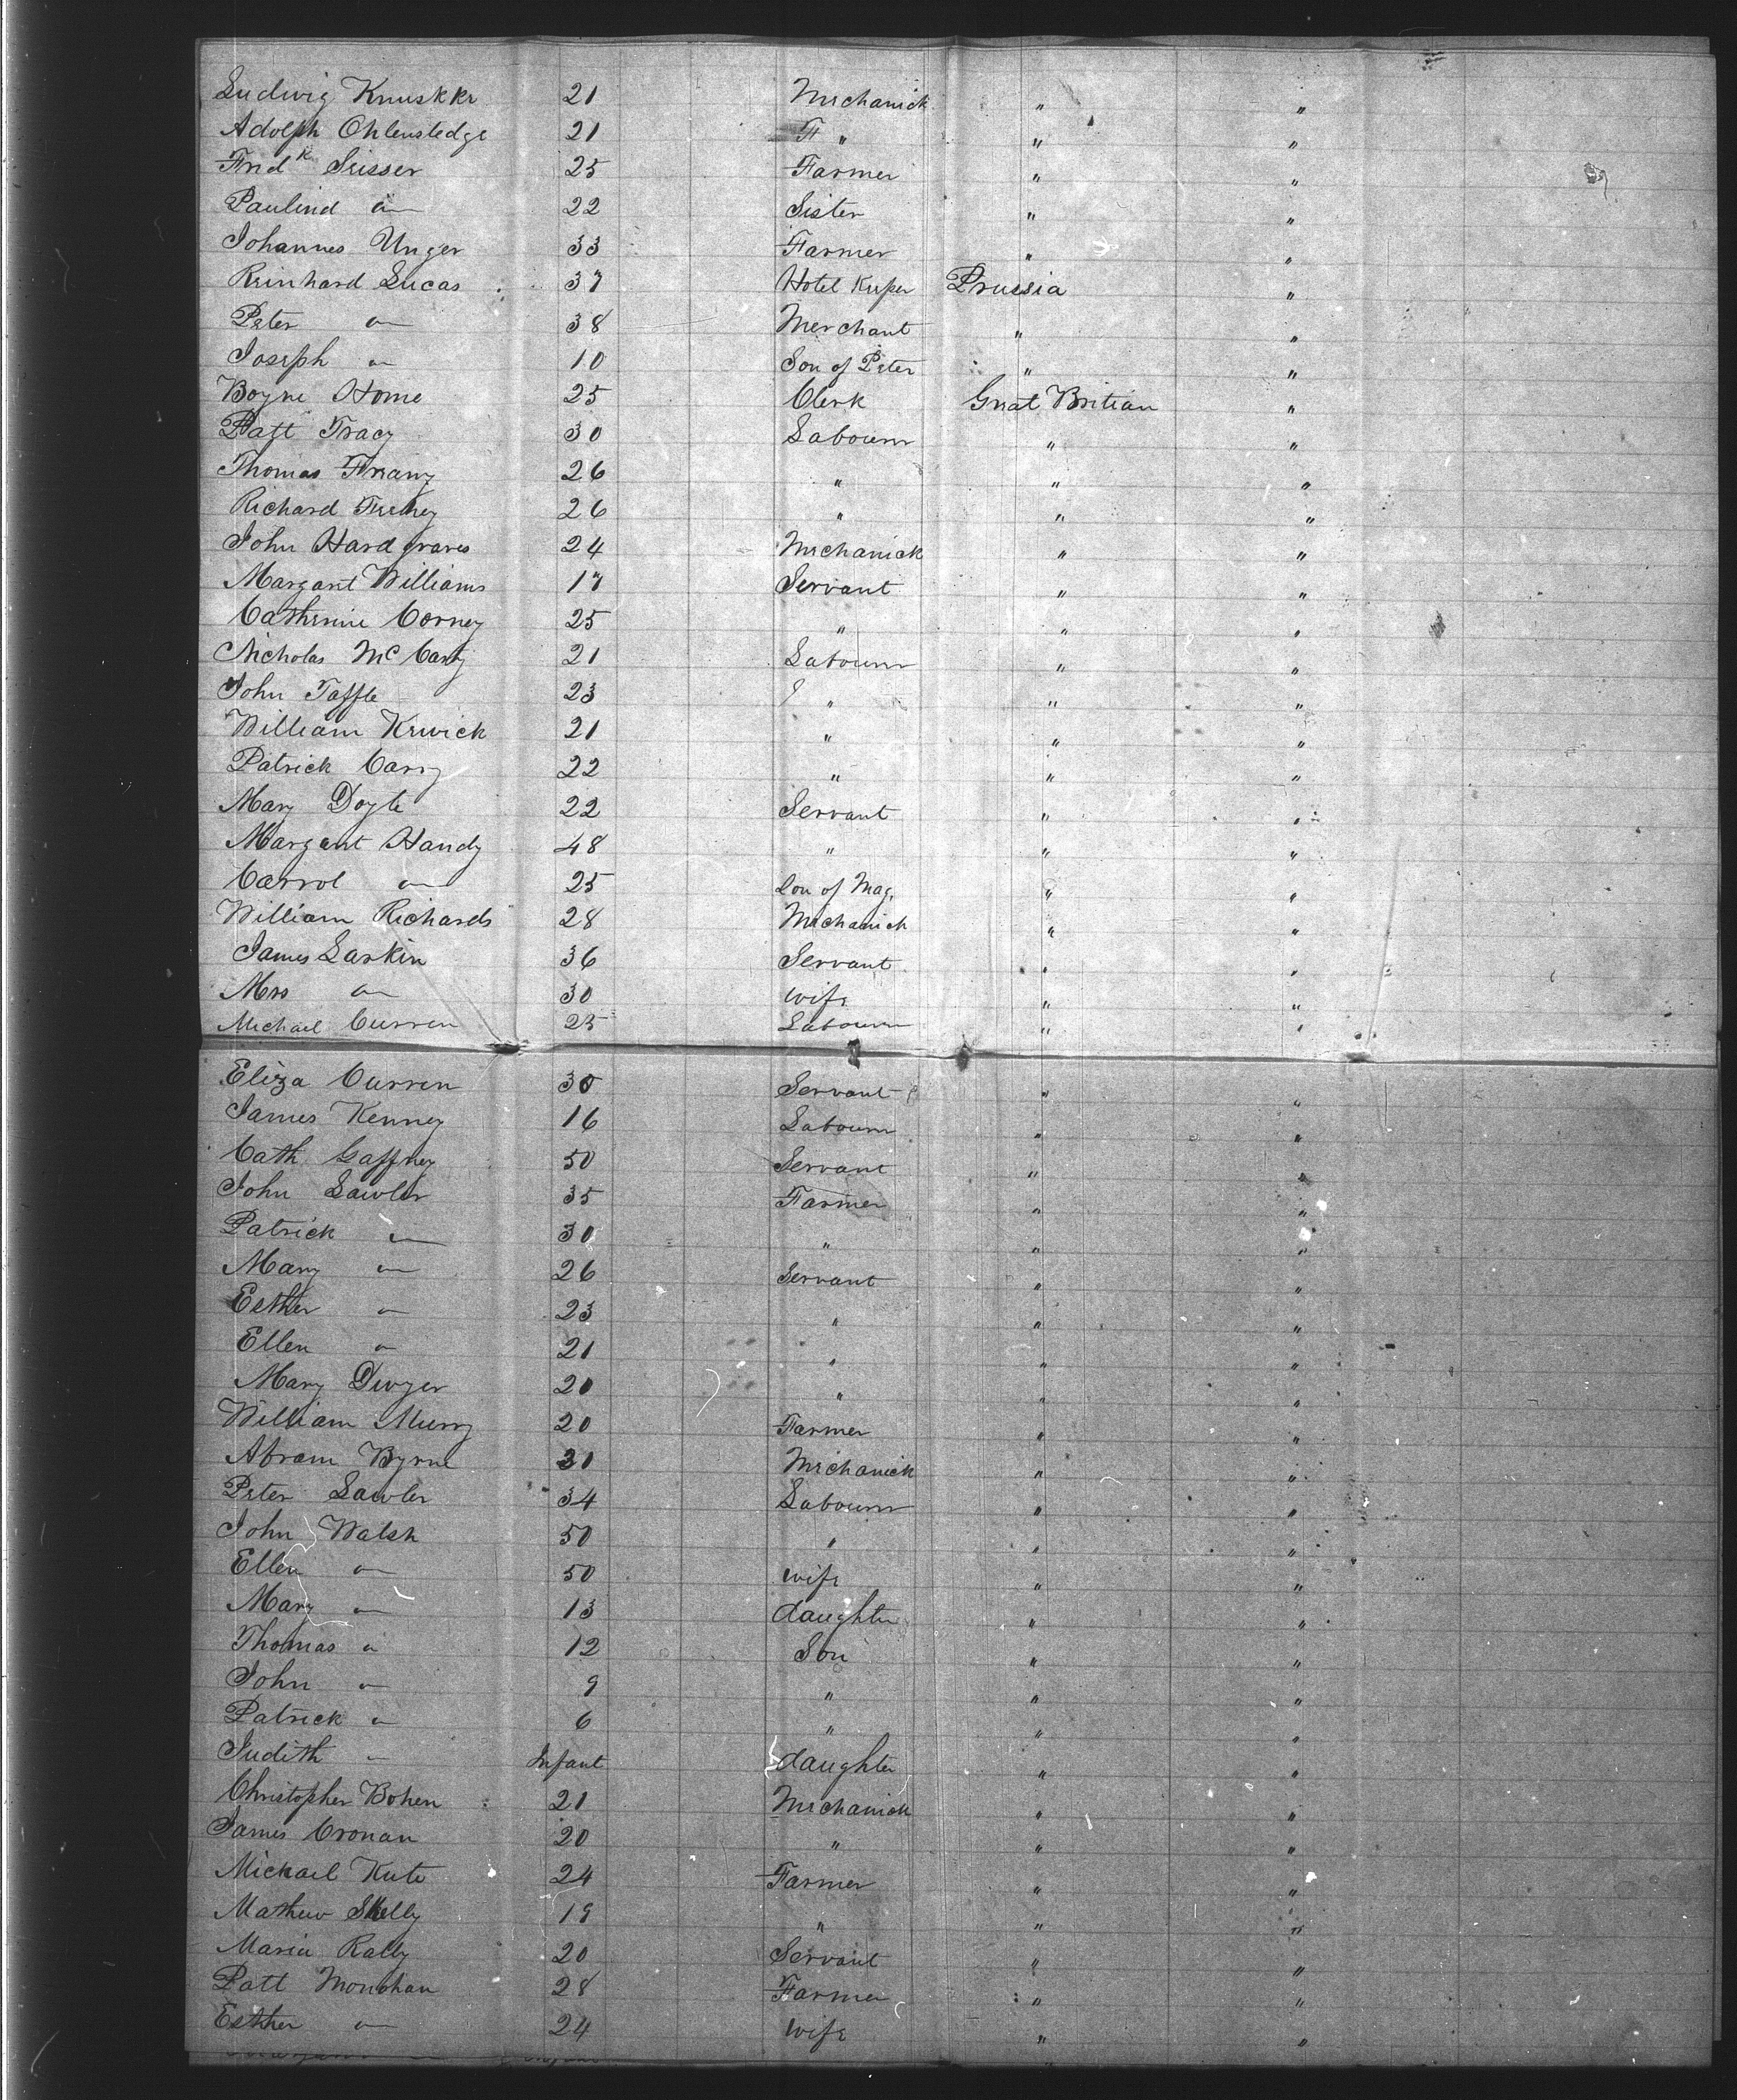 Ludwig Knuskkr 21 Mechanick " "
Adolph Ohlenstedge 21 F " " "
Fred k Seisser 25 Farmer " "
Paulind " 22 Sister " "
Johannes Unger 33 Farmer " "
Reinhard Lucas 37 Hotel Keeper Prussia "
Peter " 38 Merchant " "
Joseph " 10 Son of Peter " "
Boyne Home 25 Clerk Great Britian "
Patt Tracy 30 Labourer " "
Thomas 26 " " "
Richard 26 " " "
John Hardgraves 24 Mechanick " "
Margaret Williams 17 Servant " "
Catherine Corney 25 " " "
Nicholas Mc Carty 21 Labourer " "
John Taffle 23 " " "
William Kewick 21 " " "
Patrick Carry 22 " " "
Mary Doyle 22 Servant " "
Margaret Handy 48 " " "
Carrol " 25 Son of Mag. " "
William Richards 28 Mechanick " "
James Larkin 36 Servant " "
Mrs " 30 wife " "
Michael Curren 25 Labourer " "
Eliza Curren 30 Servant " "
James Kenney 16 Labourer " "
Cath Gaffney 50 Servant " "
John Lawler 35 Farmer " "
Patrick " 30 " " "
Mary " 26 Servant " "
Esther " 23 " " "
Ellen " 21 " " "
Mary Dwyer 20 " " "
William Murry 20 Farmer " "
Abram Byrne 31 Mechanick " "
Peter Lawler 34 Labourer " "
John Walsh 50 " " "
Ellen " 50 wife " "
Mary " 13 daughter " "
Thomas " 12 Son " "
John " 9 " " "
Patrick " 6 " " "
Judith " Infant daughter " "
Christopher Bohen 21 Mechanick " "
James Cronan 20 " " "
Mickael Kute 24 Farmer " "
Mathew Skelly 19 " " "
Maria Rally 20 Servant " "
Patt Monohan 28 Farmer " "
Esther " 24 wife " "